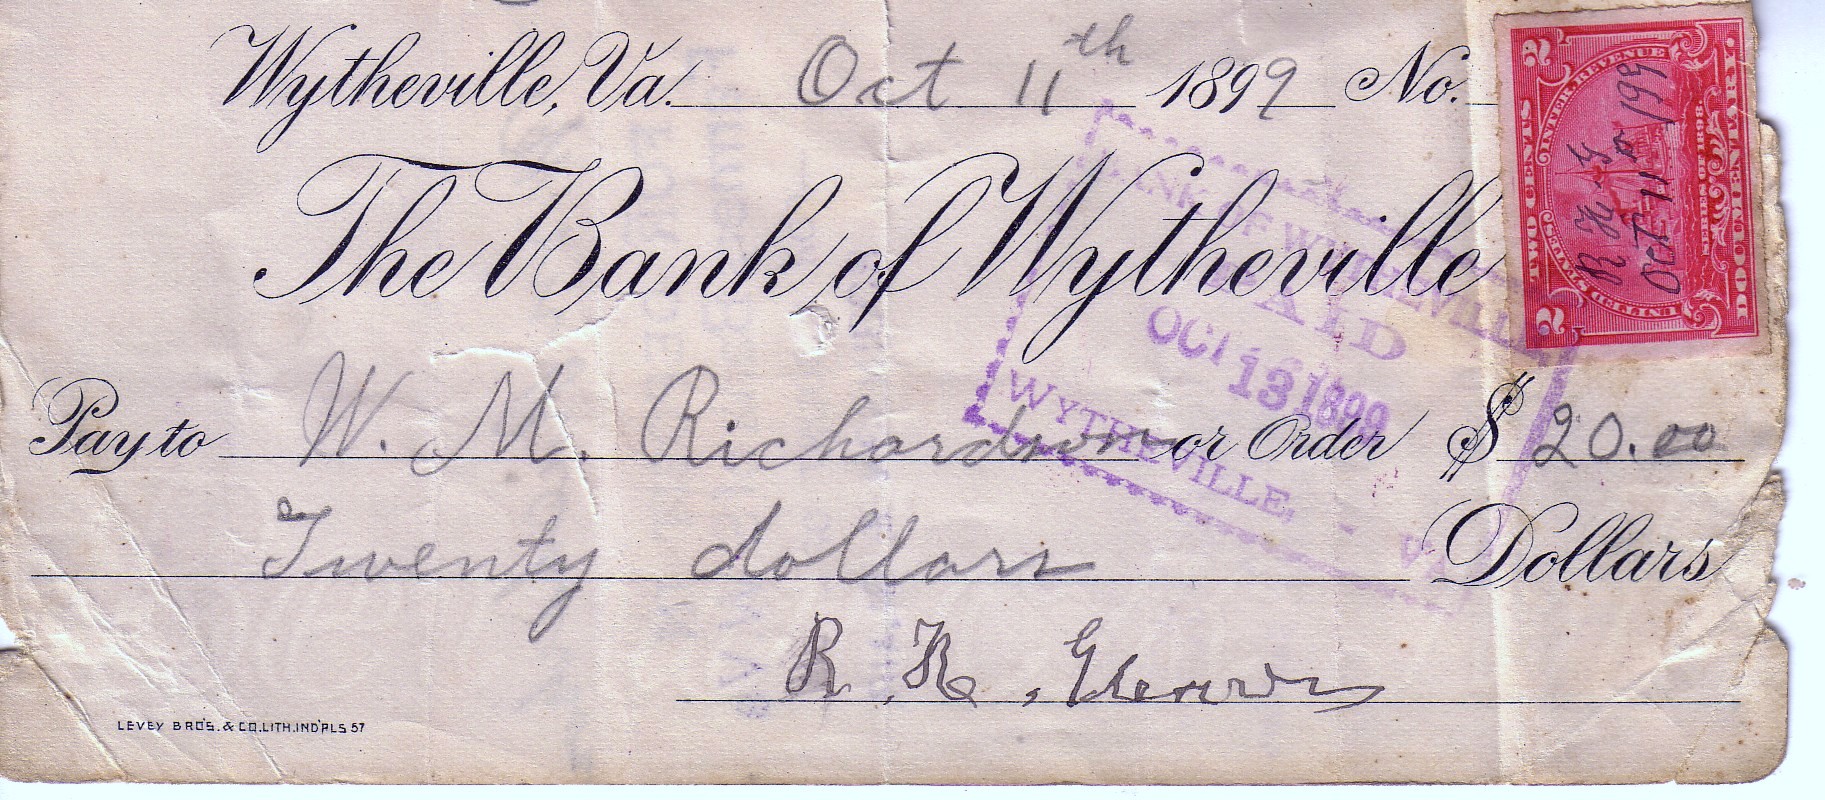 Wytheville, Va. Oct 11th 1899 No.
The Bank of Wytheville
Pay to W. M. Richardson or Order $ 20.00
Twenty dollars Dollars
R. H.
LEVEY BRO'S. & CO. LITH. IND'PLS 57
BANK OF WYTHEVILLE
PAID
OCT 13 1899
WYTHEVILLE, - VA
2 TWO CENTS 2
UNITED STATES INTER. REVENUE
SERIES OF 1898.
DOCUMENTARY.
R H G
Oct 11 199